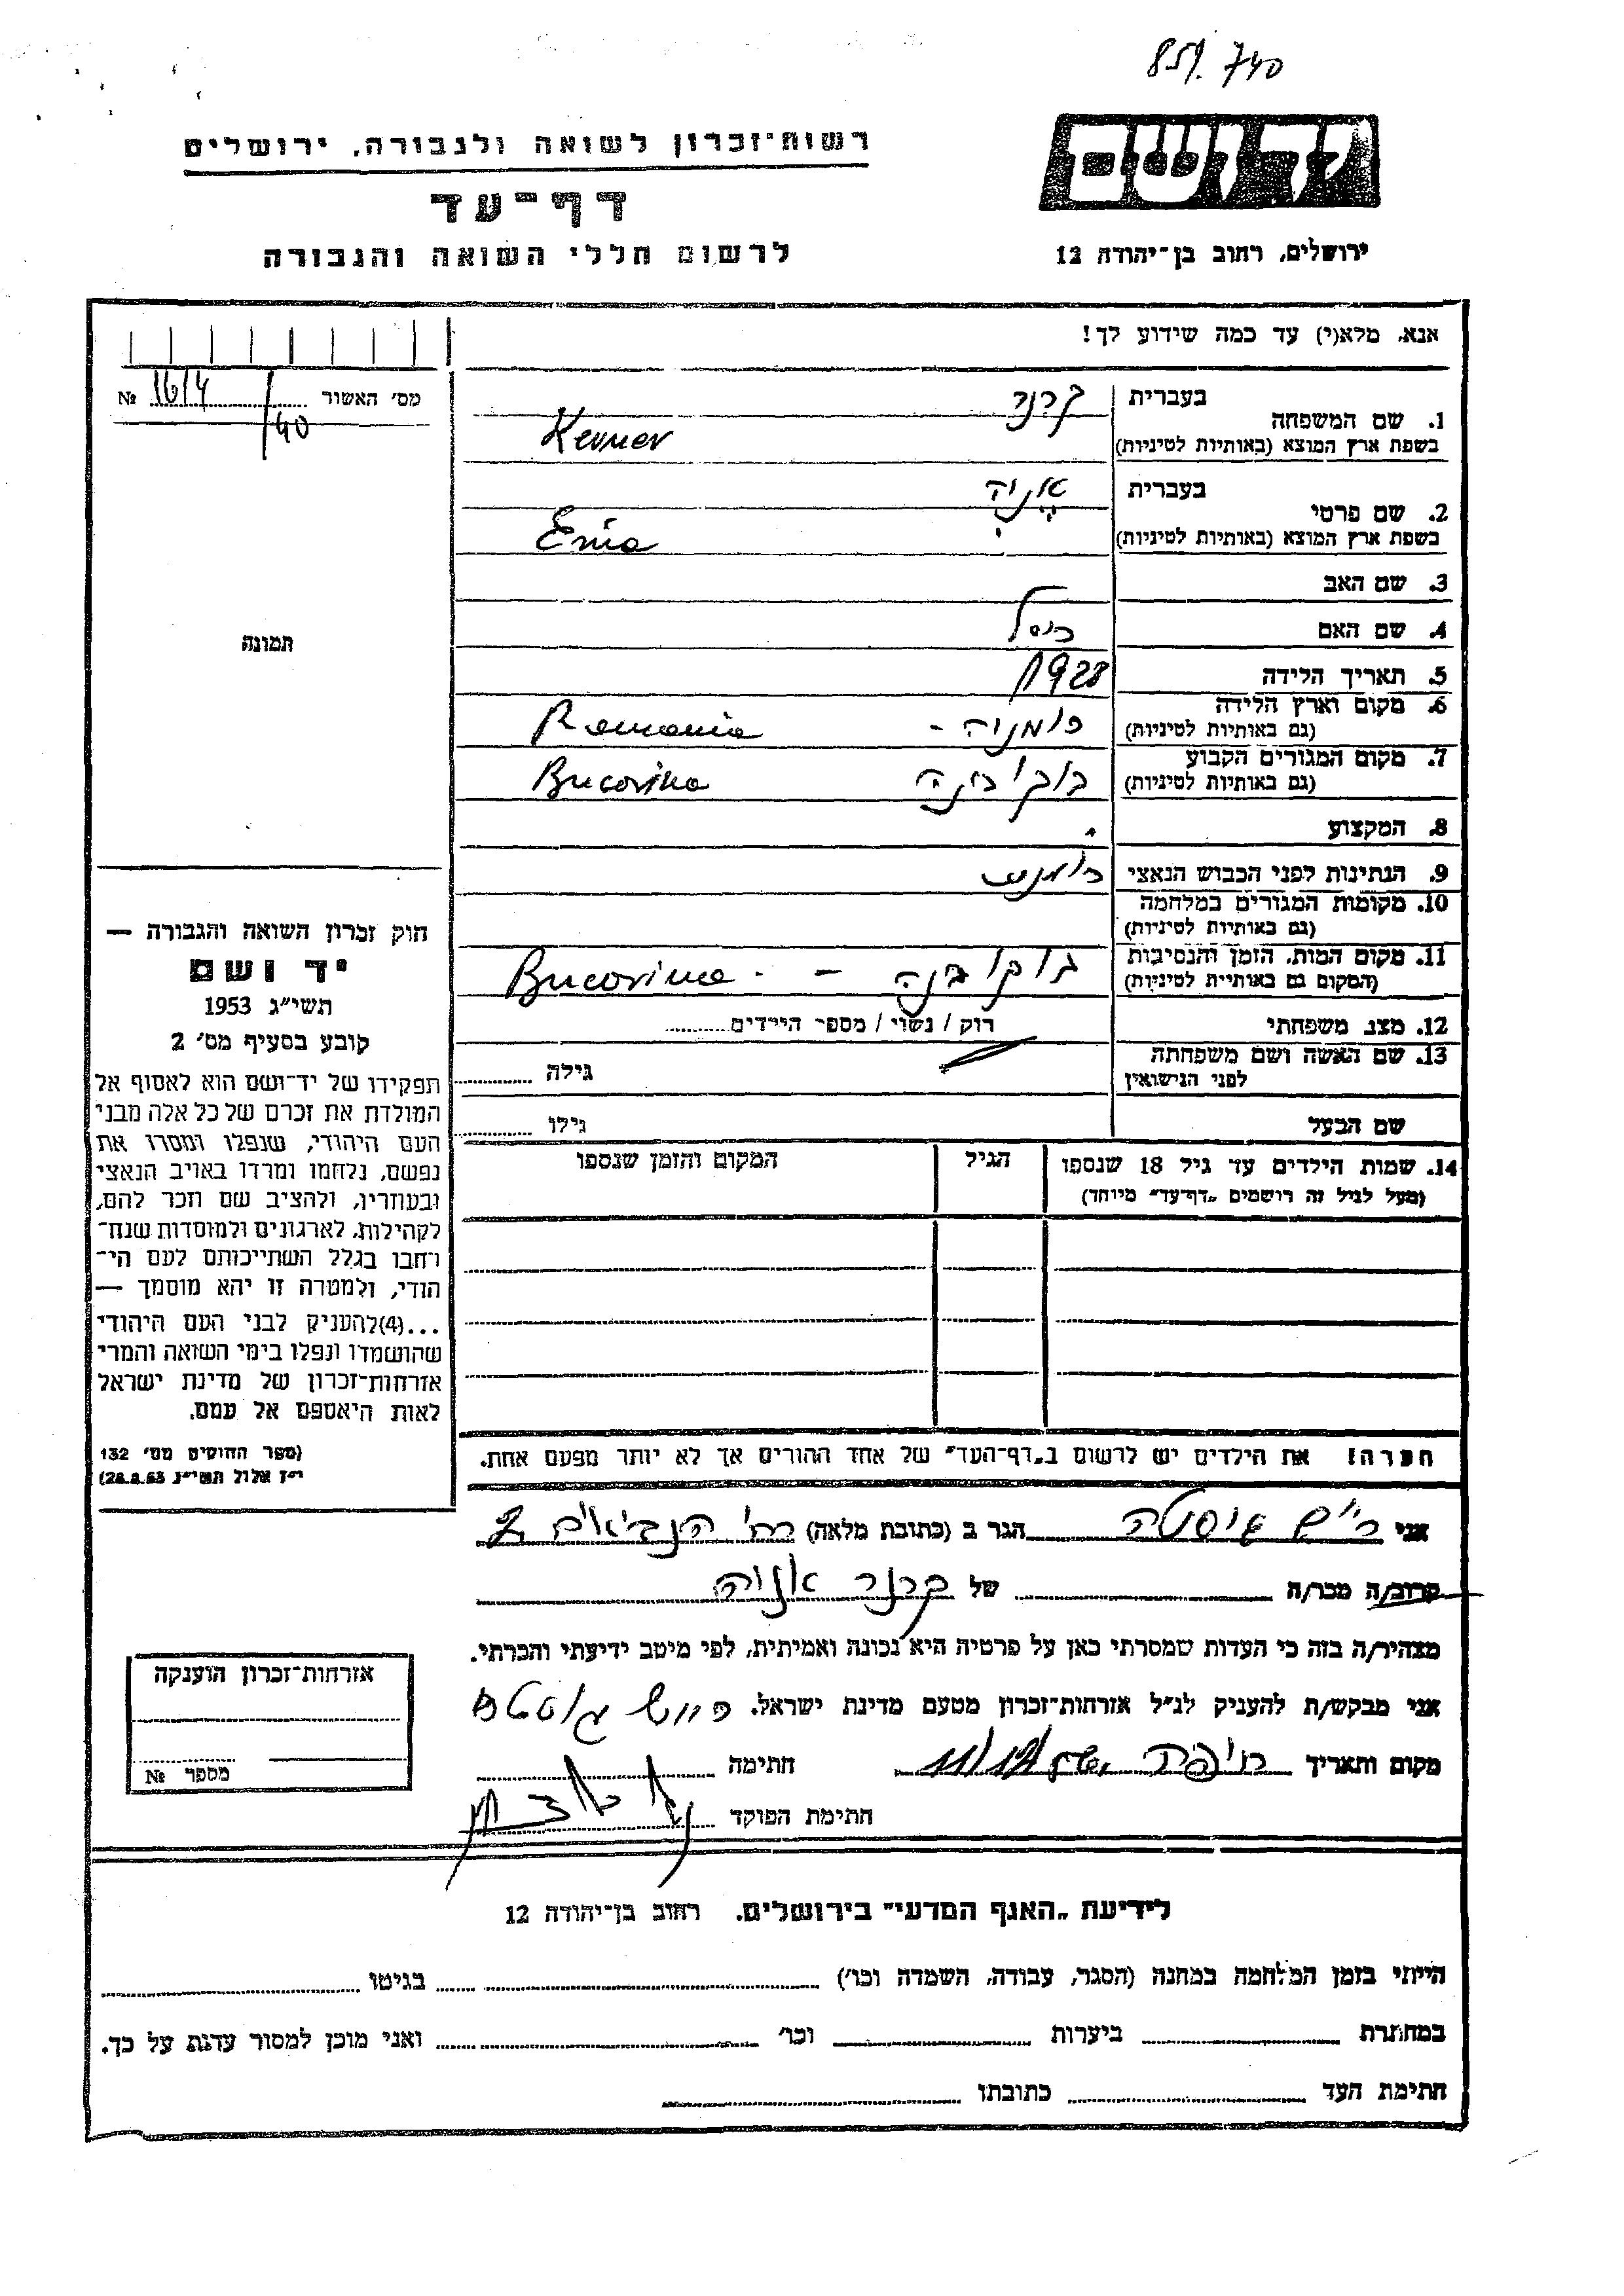 859.740
יד ושם
רשות־זכרון לשואה ולגבורה, ירושלים
דף־עד
לרשום חללי השואה והגבורה
ירושלים, רחוב בן־יהודה 12
אנא, מלא(י) עד כמה שידוע לך!
מס׳ האשור № 1614/40
1. שם המשפחה
בעברית קרנר
בשפת ארץ המוצא (באותיות לטיניות) Kerner
2. שם פרטי
בעברית אניה
בשפת ארץ המוצא (באותיות לטיניות) Enia
3. שם האב
4. שם האם
תמונה
5. תאריך הלידה 1928
6. מקום וארץ הלידה
(גם באותיות לטיניות) רומניה - Romania
7. מקום המגורים הקבוע
(גם באותיות לטיניות) בוקובינה Bucovina
8. המקצוע
9. הנתינות לפני הכבוש הנאצי רומנית
10. מקומות המגורים במלחמה
(גם באותיות לטיניות)
11. מקום המות, הזמן והנסיבות
(המקום גם באותיית לטיניות) בוקובינה - Bucovina
12. מצב משפחתי רוק / נשוי / מספר הילדים
13. שם האשה ושם משפחתה
לפני הנישואין גילה
שם הבעל גילו
14. שמות הילדים עד גיל 18 שנספו
(מעל לגיל זה רושמים „דף־עד״ מיוחד)
הגיל
המקום והזמן שנספו
חוק זכרון השואה והגבורה —
יד ושם
תשי״ג 1953
קובע בסעיף מס׳ 2
תפקידו של יד־ושם הוא לאסוף אל
המולדת את זכרם של כל אלה מבני
העם היהודי, שנפלו ומסרו את
נפשם, נלחמו ומרדו באויב הנאצי
ובעוזריו, ולהציב שם וזכר להם,
לקהילות, לארגונים ולמוסדות שנח־
רבו בגלל השתייכותם לעם הי־
הודי, ולמטרה זו יהא מוסמך —
...(4)להעניק לבני העם היהודי
שהושמדו ונפלו בימי השואה והמרי
אזרחות־זכרון של מדינת ישראל
לאות היאספם אל עמם.
(ספר החוקים מס׳ 132
י״ז אלול תשי״ג 28.8.53)
הערה! את הילדים יש לרשום ב„דף־העד״ של אחד ההורים אך לא יותר מפעם אחת.
אני הגר ב (כתובת מלאה) רח׳ הנביאים
קרוב/ה מכר/ה של קרנר אניה
מצהיר/ה בזה כי העדות שמסרתי כאן על פרטיה היא נכונה ואמיתית, לפי מיטב ידיעתי והכרתי.
אני מבקש/ת להעניק לנ״ל אזרחות־זכרון מטעם מדינת ישראל.
מקום ותאריך חיפה חתימה
חתימת הפוקד
אזרחות־זכרון הוענקה
מספר №
לידיעת „האגף המדעי״ בירושלים. רחוב בן־יהודה 12
הייתי בזמן המלחמה במחנה (הסגר, עבודה, השמדה וכו׳) בגיטו
במחתרת ביערות וכו׳ ואני מוכן למסור עדות על כך.
חתימת העד כתובתו